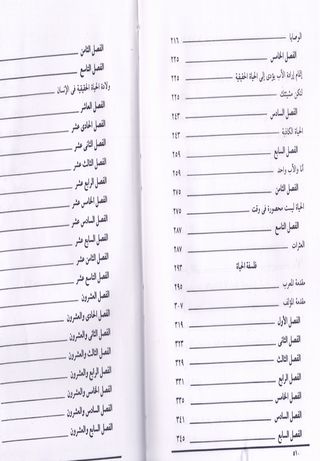 الوصايا ٢١٦
الفصل الخامس ٢٢٥
إتمام إرادة الأب يؤدى إلى الحياة الحقيقية ٢٢٥
لتكن مشيئتك ٢٢٥
الفصل السادس ٢٤٣
الحياة الكاذبة ٢٤٣
الفصل السابع ٢٥٩
أنا والأب واحد ٢٥٩
الفصل الثامن ٢٧٥
الحياة ليست محصورة فى وقت ٢٧٥
الفصل التاسع ٢٨٧
العثرات ٢٨٧
فلسفة الحياة ٢٩٣
مقدمة المعرب ٢٩٥
مقدمة المؤلف ٣٠٧
الفصل الأول ٣١٩
الفصل الثانى ٣٢٣
الفصل الثالث ٣٢٩
الفصل الرابع ٣٣١
الفصل الخامس ٣٣٥
الفصل السادس ٣٤١
الفصل السابع ٣٤٥
٥١٠
الفصل الثامن
الفصل التاسع
ولادة الحياة الحقيقية فى الإنسان
الفصل العاشر
الفصل الحادى عشر
الفصل الثانى عشر
الفصل الثالث عشر
الفصل الرابع عشر
الفصل الخامس عشر
الفصل السادس عشر
الفصل السابع عشر
الفصل الثامن عشر
الفصل التاسع عشر
الفصل العشرون
الفصل الحادى والعشرون
الفصل الثانى والعشرون
الفصل الثالث والعشرون
الفصل الرابع والعشرون
الفصل الخامس والعشرون
الفصل السادس والعشرون
الفصل السابع والعشرون